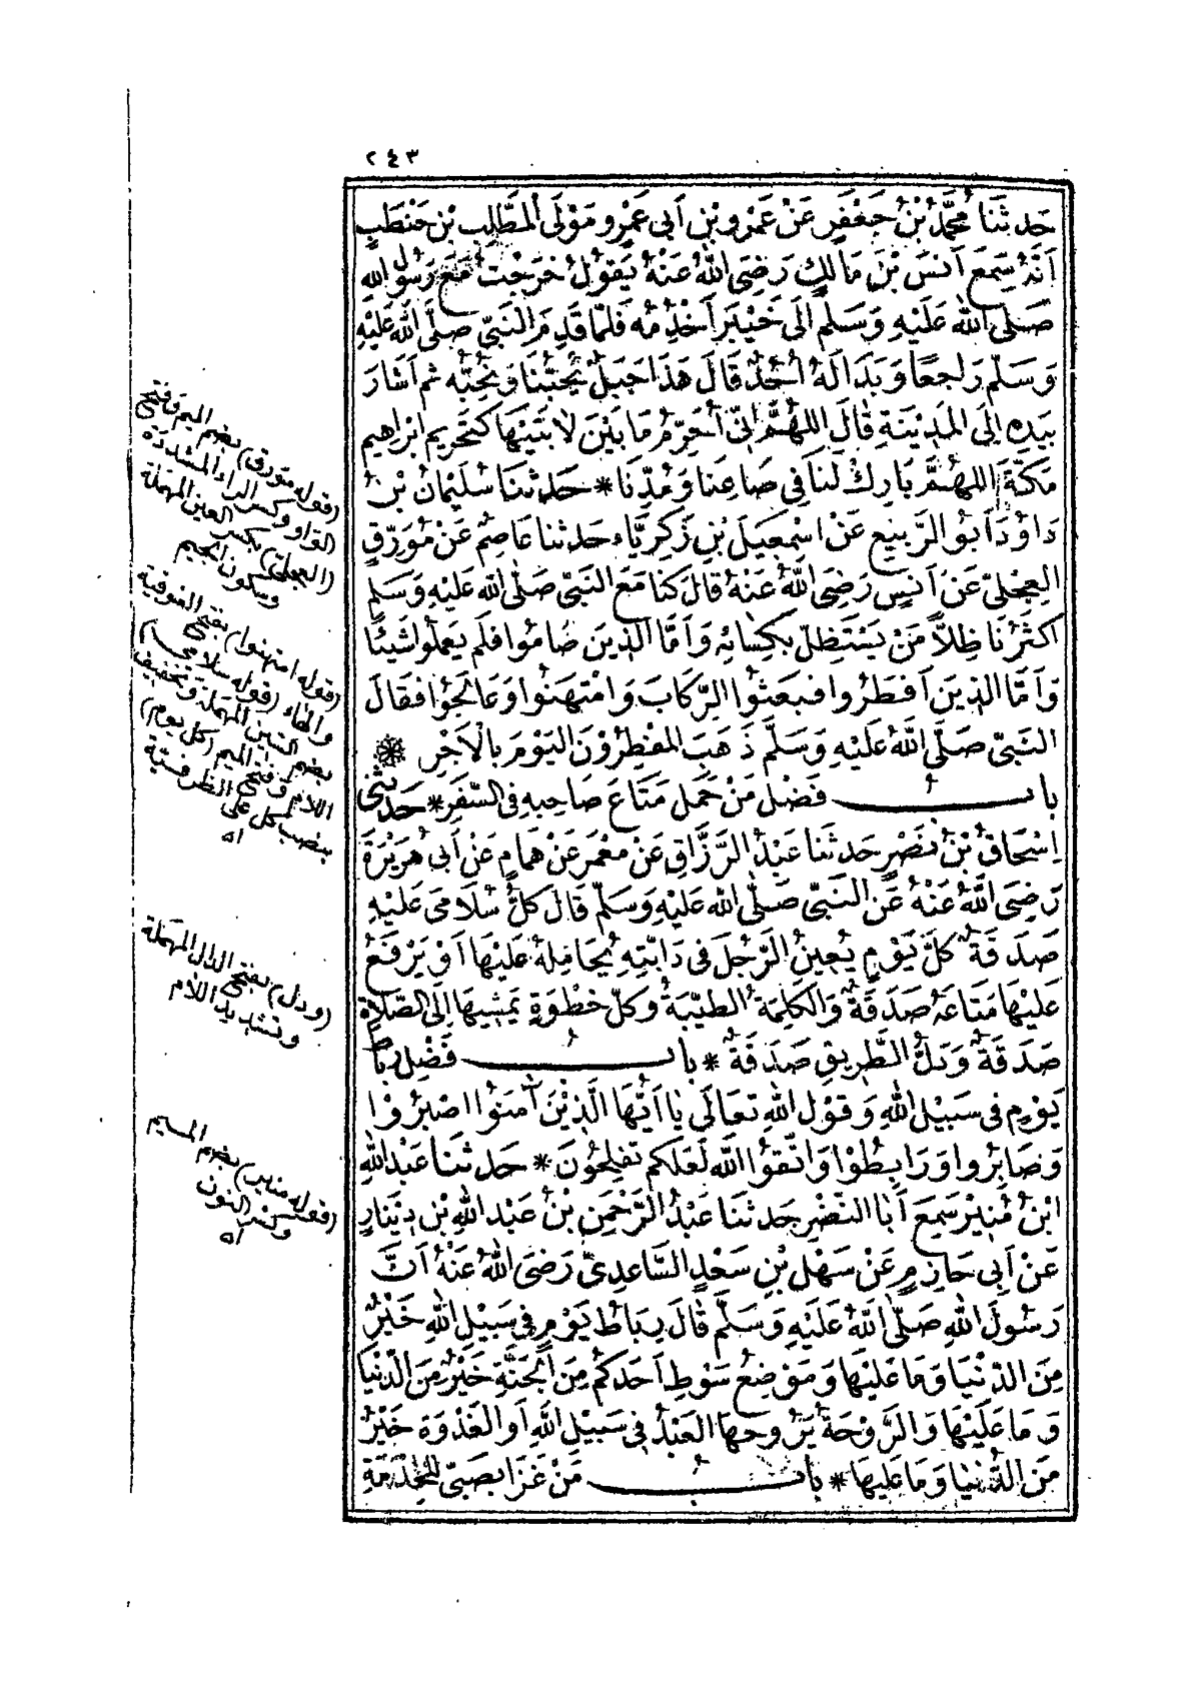 ٢٤٣
حَدثَنَا مُحَمَّدُ بْنُ جَعْفَرٍ عَنْ عَمْرِو بْنِ أَبِى عَمْرٍو مَوْلَى الْمُطَّلِبِ بْنِ حَنْطَبٍ
أَنَّهُ سَمِعَ أَنَسَ بْنَ مَالِكٍ رَضِىَ اللهُ عَنْهُ يَقُولُ خَرَجْتُ مَعَ رَسُولِ اللهِ
صَلَّى اللهُ عَلَيْهِ وَسَلَّمَ إِلَى خَيْبَرَ أَخْدُمُهُ فَلَمَّا قَدِمَ النَّبِىُّ صَلَّى اللهُ عَلَيْهِ
وَسَلَّمَ رَاجِعًا وَبَدَا لَهُ أُحُدٌ قَالَ هَذَا جَبَلٌ يُحِبُّنَا وَنُحِبُّهُ ثم أَشَارَ
بِيَدِهِ إِلَى الْمَدِينَةِ قَالَ اللهُمَّ إِنِّى أُحَرِّمُ مَا بَيْنَ لَابَتَيْهَا كَتَحْرِيمِ ابْرَاهِيمَ
مَكَّةَ اللهُمَّ بَارِكْ لَنَا فِى صَاعِنَا وَمُدِّنَا * حَدثنَا سُلَيْمَانُ بْنُ
دَاوُدَ أَبُو الرَّبِيعِ عَنْ اسْمعِيلَ بْنِ زَكَرِيَّاءَ حَدثنا عَاصِمٌ عَنْ مُوَرِّقٍ
العِجْلِىِّ عَنْ أَنَسٍ رَضِىَ اللهُ عَنْهُ قَالَ كنا مَعَ النَّبِىِّ صَلَّى الله عَلَيْهِ وَسَلم
أكْثَرُنَا ظِلًّا مَنْ يَسْتَظِلُّ بِكِسَائِهِ وَأَمَّا الذِينَ صَامُوا فَلَم يَعْمَلُوا شَيْئًا
وَأَمَّا الذِينَ أَفْطَرُوا فَبَعَثُوا الرِّكَابَ وَامْتَهَنُوا وَعَالَجُوا فَقَالَ
النَّبِىُّ صَلَّى اللهُ عَلَيْهِ وَسَلَّمَ ذَهَبَ المُفْطِرُونَ اليَوْمَ بِالْأَجْرِ
بابُ فَضْلِ مَنْ حَمَلَ مَتَاعَ صَاحِبِهِ فِى السَّفَرِ * حَدثنى
اِسْحَاقُ بْنُ نَصْرٍ حَدثَنَا عَبْدُ الرَّزَّاقِ عَنْ مَعْمَرٍ عَنْ هَمَّامٍ عَنْ أَبِى هُرَيْرَةَ
رَضِىَ اللهُ عَنْهُ عَنِ النَّبِىِّ صَلَّى الله عَلَيْهِ وَسَلَّمَ قَالَ كُلُّ سُلَامَى عَلَيْهِ
صَدَقَةٌ كُلَّ يَوْمٍ يُعِينُ الرَّجُلَ فِى دَابَّتِهِ يُحَامِلُهُ عَلَيْهَا أَوْ يَرْفَعُ
عَلَيْهَا مَتَاعَهُ صَدَقَةٌ وَالْكَلِمَةُ الطَّيِّبَةُ وَكُلُّ خَطْوَةٍ يَمْشِيهَا إِلَى الصَّلَاةِ
صَدَقَةٌ وَدَلُّ الطَّرِيقِ صَدَقَةٌ * بابُ فَضْلِ رِبَاطِ
يَوْمٍ فِى سَبِيلِ اللهِ وَقَوْلِ اللهِ تَعَالَى يَا أَيُّهَا الَّذِيْنَ آمَنُوا اصْبِرُوا
وَصَابِرُوا وَرَابِطُوْا وَاتَّقُوا اللهَ لَعَلَّكُم تُفْلِحُونَ * حَدثَنَا عَبْدُ اللهِ
ابْنُ مُنِيرٍ سَمِعَ أَبَا النَّضْرِ حَدثَنَا عَبْدُ الرَّحْمَنِ بْنُ عَبْدِ اللهِ بْنِ دِينَارٍ
عَنْ أَبِى حَازِمٍ عَنْ سَهْلِ بْنِ سَعْدٍ السَّاعِدِىِّ رَضِىَ اللهُ عَنْهُ أَنَّ
رَسُولَ اللهِ صَلَّى اللهُ عَلَيْهِ وَسَلَّمَ قَالَ رِبَاطُ يَوْمٍ فِى سَبِيلِ اللهِ خَيْرٌ
مِنَ الدُّنْيَا وَمَا عَلَيْهَا وَمَوْضِعُ سَوْطِ أَحَدِكُمْ مِنَ الْجَنَّةِ خَيْرٌ مِنَ الدُّنْيَا
وَمَا عَلَيْهَا وَالرَّوْحَةُ يَرُوحُهَا العَبْدُ فِى سَبِيلِ اللهِ أَو الغَدْوَةُ خَيْرٌ
مِنَ الدُّنْيَا وَمَا عَلَيهَا * بابُ مَنْ غَزَا بِصَبِىٍّ لِلْخِدْمَةِ
(قوله مورق) بضم الميم وفتح
الواو وكسر الراء المشددة
(العجلى) بكسر العين المهملة
وسكون الجيم
(قوله امتهنوا) بفتح الفوقية
والهاء (قوله سلامى)
بضم السين المهملة وتخفيف
اللام وفتح الميم (كل يوم)
بنصب كل على الظرفية
اه
(ودل) بفتح الدال المهملة
وتشديد اللام
(قوله منير) بضم الميم
وكسر النون
اه